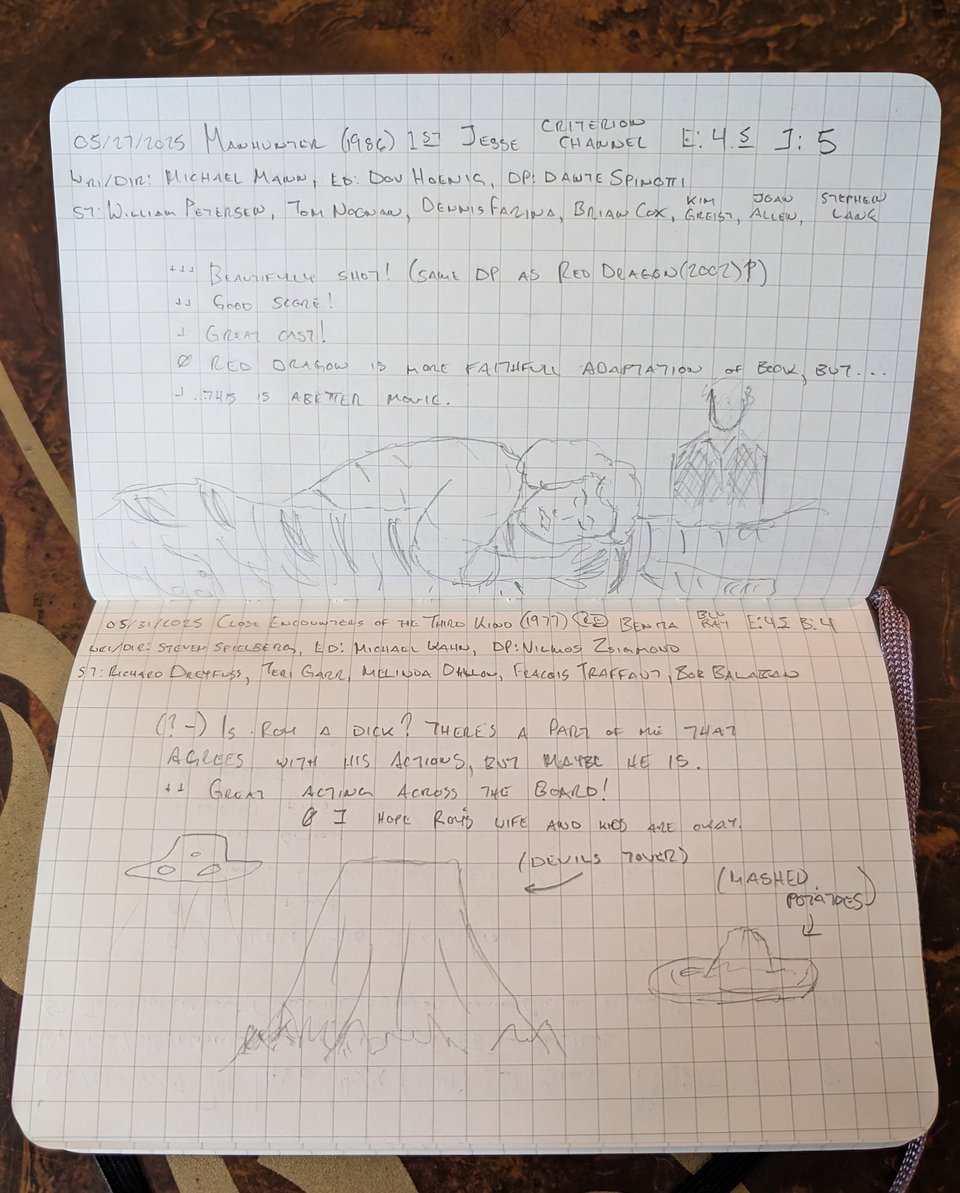 05/27/2025 MANHUNTER (1986) 1ST JESSE CRITERION CHANNEL E: 4.5 J: 5
WRI/DIR: MICHAEL MANN, ED: DOV HOENIG, DP: DANTE SPINOTTI
ST: WILLIAM PETERSEN, TOM NOONAN, DENNIS FARINA, BRIAN COX, KIM GREIST, JOAN ALLEN, STEPHEN LANG
+++ BEAUTIFULLY SHOT! (SAME DP AS RED DRAGON (2002)?)
++ GOOD SCORE!
+ GREAT CAST!
Ø RED DRAGON IS MORE FAITHFULL ADAPTATION OF BOOK, BUT...
+ ..THIS IS A BETTER MOVIE.
05/31/2025 CLOSE ENCOUNTERS OF THE THIRD KIND (1977) RE BENITA BLU RAY E: 4.5 B: 4
WRI/DIR: STEVEN SPIELBERG, ED: MICHAEL KAHN, DP: VILMOS ZSIGMOND
ST: RICHARD DREYFUSS, TERI GARR, MELINDA DILLON, FRACOIS TRAFFAUT, BOB BALABAN
(? -) IS ROY A DICK? THERE'S A PART OF ME THAT
AGREES WITH HIS ACTIONS, BUT MAYBE HE IS.
++ GREAT ACTING ACROSS THE BOARD!
Ø I HOPE ROY'S WIFE AND KIDS ARE OKAY.
(DEVILS TOWER)
(MASHED
POTATOES)